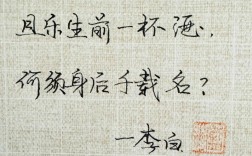 且乐生前一杯酒，
何须身后千载名？
一李白